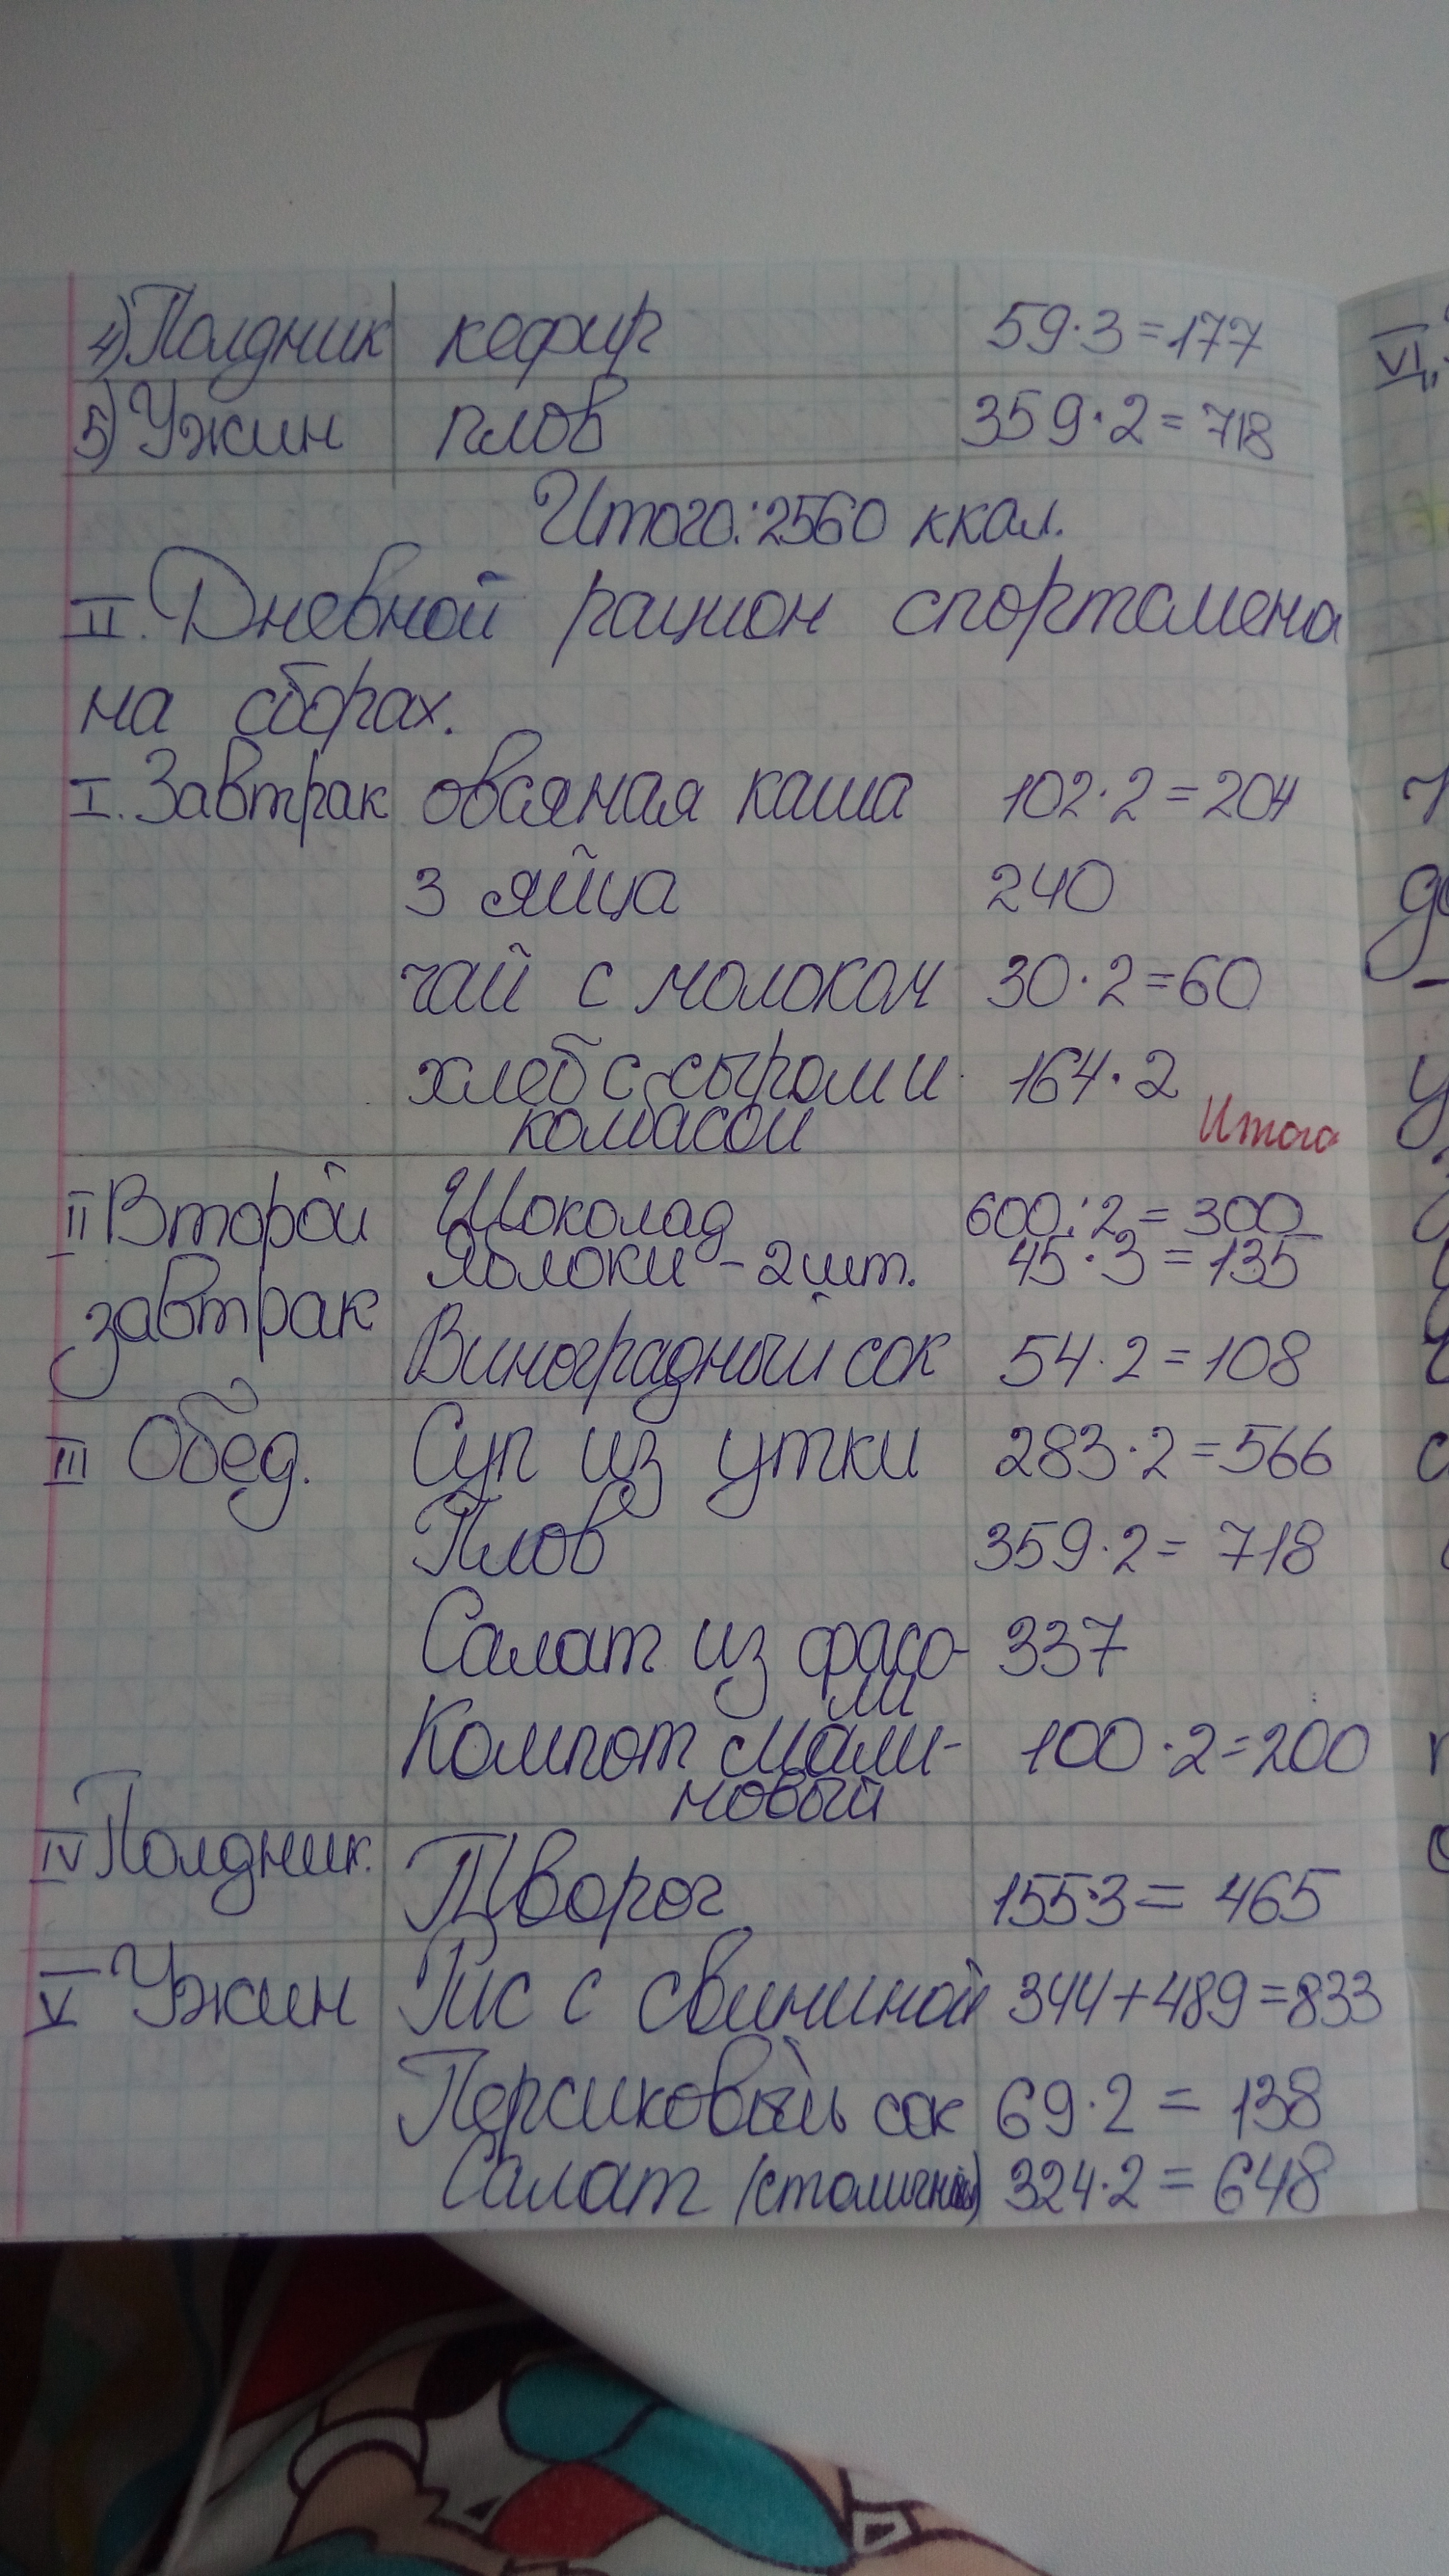 4) Полдник кефир 59·3=177
5) Ужин плов 359·2=718
Итого: 2560 ккал.
II. Дневной рацион спортсмена
на сборах.
I. Завтрак овсяная каша 102·2=204
3 яйца 240
чай с молоком 30·2=60
хлеб с сыром и 164·2
колбасой Итого
II Второй Шоколад 600:2=300
Яблоки - 2 шт. 45·3=135
завтрак
Виноградный сок 54·2=108
III Обед. Суп из утки 283·2=566
Плов 359·2=718
Салат из фасо- 337
ли
Компот мали- 100·2=200
новый
IV Полдник. Творог 155·3=465
V Ужин Рис с свининой 344+489=833
Персиковый сок 69·2=138
Салат (столичный) 324·2=648
VI